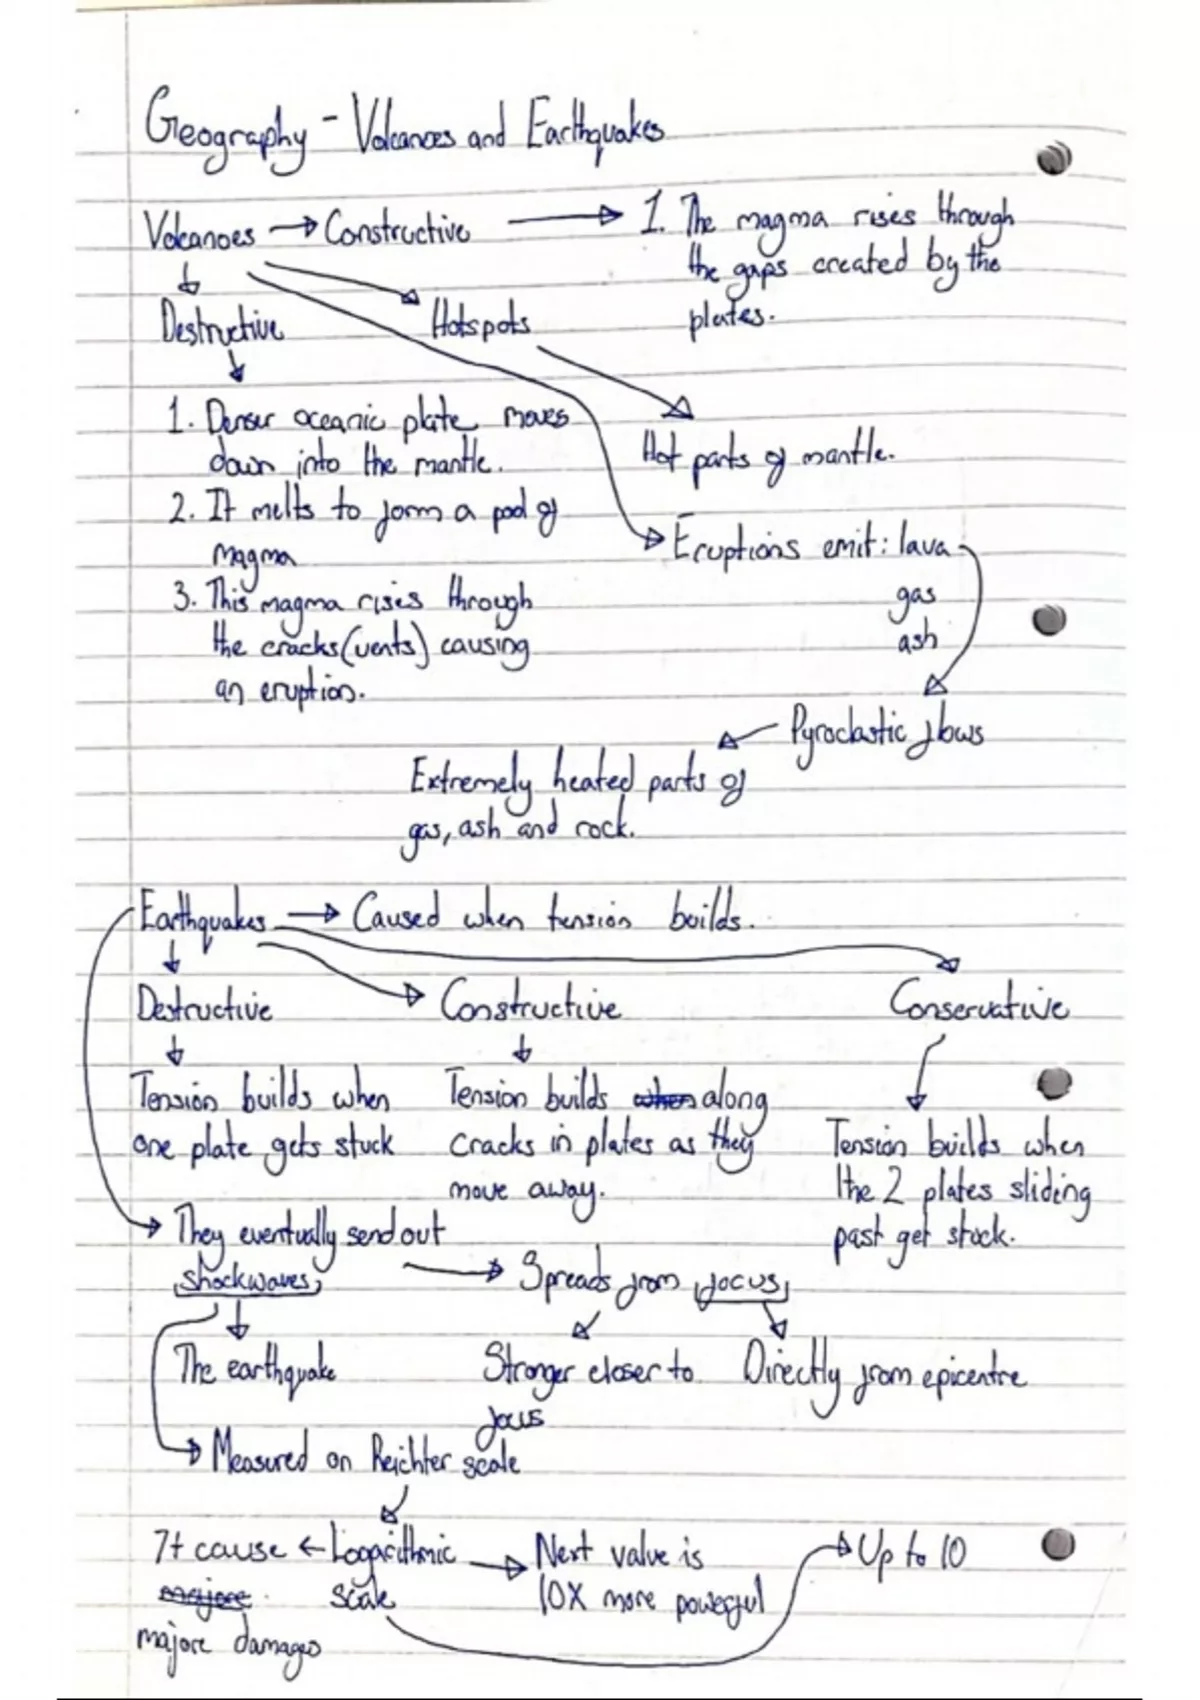 Geography - Volcanoes and Earthquakes
Volcanoes → Constructive → 1. The magma rises through
the gaps created by the
plates.
Destructive
Hotspots
1. Denser oceanic plate moves
down into the mantle.
2. It melts to form a pool of
magma
3. This magma rises through
the cracks (vents) causing
an eruption.
Hot parts of mantle.
Eruptions emit: lava
gas
ash
Pyroclastic flows
Extremely heated parts of
gas, ash and rock.
Earthquakes → Caused when tension builds.
Destructive
Constructive
Conservative
Tension builds when
one plate gets stuck
Tension builds when along
cracks in plates as they
move away.
Tension builds when
the 2 plates sliding
past get stuck.
They eventually send out
shockwaves,
Spreads from focus,
The earthquake
Stronger closer to
focus
Directly from epicentre
Measured on Reichter scale
7+ cause ← Logarithmic
scale
majore
majore damages
Next value is
10X more powerful
Up to 10